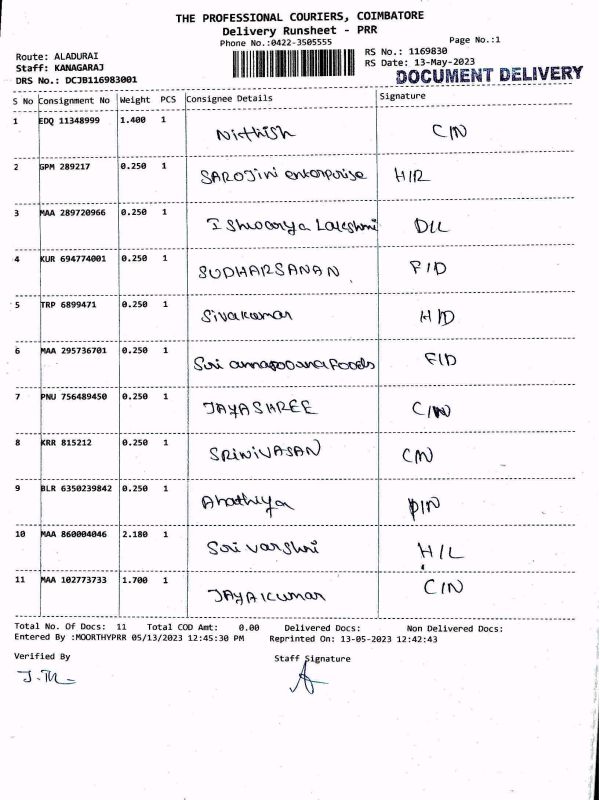 THE PROFESSIONAL COURIERS, COIMBATORE
Delivery Runsheet - PRR
Phone No.:0422-3505555
Page No.:1
Route: ALADURAI
Staff: KANAGARAJ
DRS No.: DCJB116983001
RS No.: 1169830
RS Date: 13-May-2023
DOCUMENT DELIVERY
S No Consignment No Weight PCS Consignee Details Signature
1 EDQ 11348999 1.400 1 Nithish CIN
2 GPM 289217 0.250 1 SAROJini enterpurise HIR
3 MAA 289720966 0.250 1 Lakshmi
4 KUR 694774001 0.250 1 SUDHARSANAN FID
5 TRP 6899471 0.250 1 Sivakumar HID
6 MAA 295736701 0.250 1 Foods FID
7 PNU 756489450 0.250 1 JAYASHREE CIN
8 KRR 815212 0.250 1 SRINIVASAN CIN
9 BLR 6350239842 0.250 1
10 MAA 860004046 2.180 1 Sri varshni HIL
11 MAA 102773733 1.700 1 JAYAKumar CIN
Total No. Of Docs: 11 Total COD Amt: 0.00 Delivered Docs: Non Delivered Docs:
Entered By :MOORTHYPRR 05/13/2023 12:45:30 PM Reprinted On: 13-05-2023 12:42:43
Verified By Staff Signature